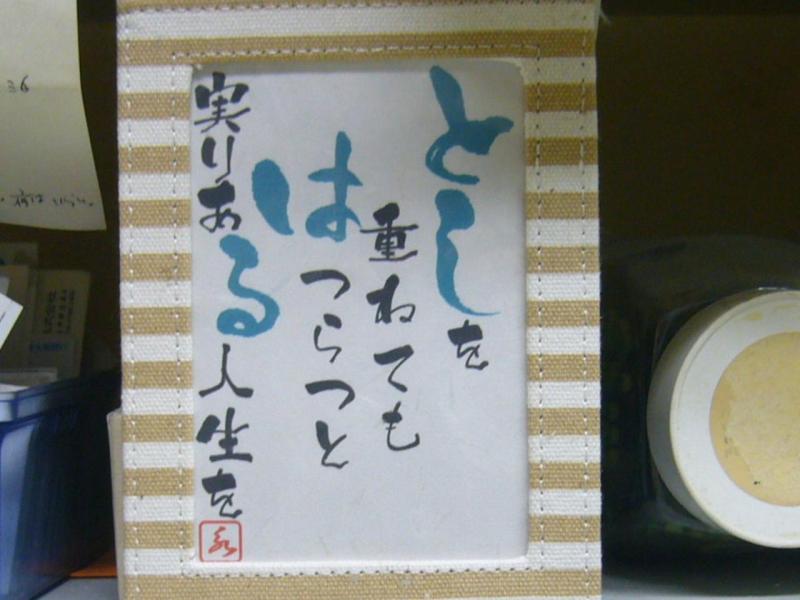 としを
重ねても
はつらつと
実りある人生を
36